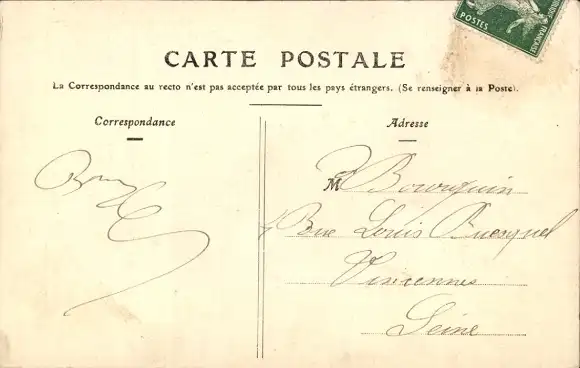 POSTES
CARTE POSTALE
La Correspondance au recto n'est pas acceptée par tous les pays étrangers. (Se renseigner à la Poste).
Correspondance
Adresse
M Bourquin
Rue Louis Buesquel
Vincennes
Seine